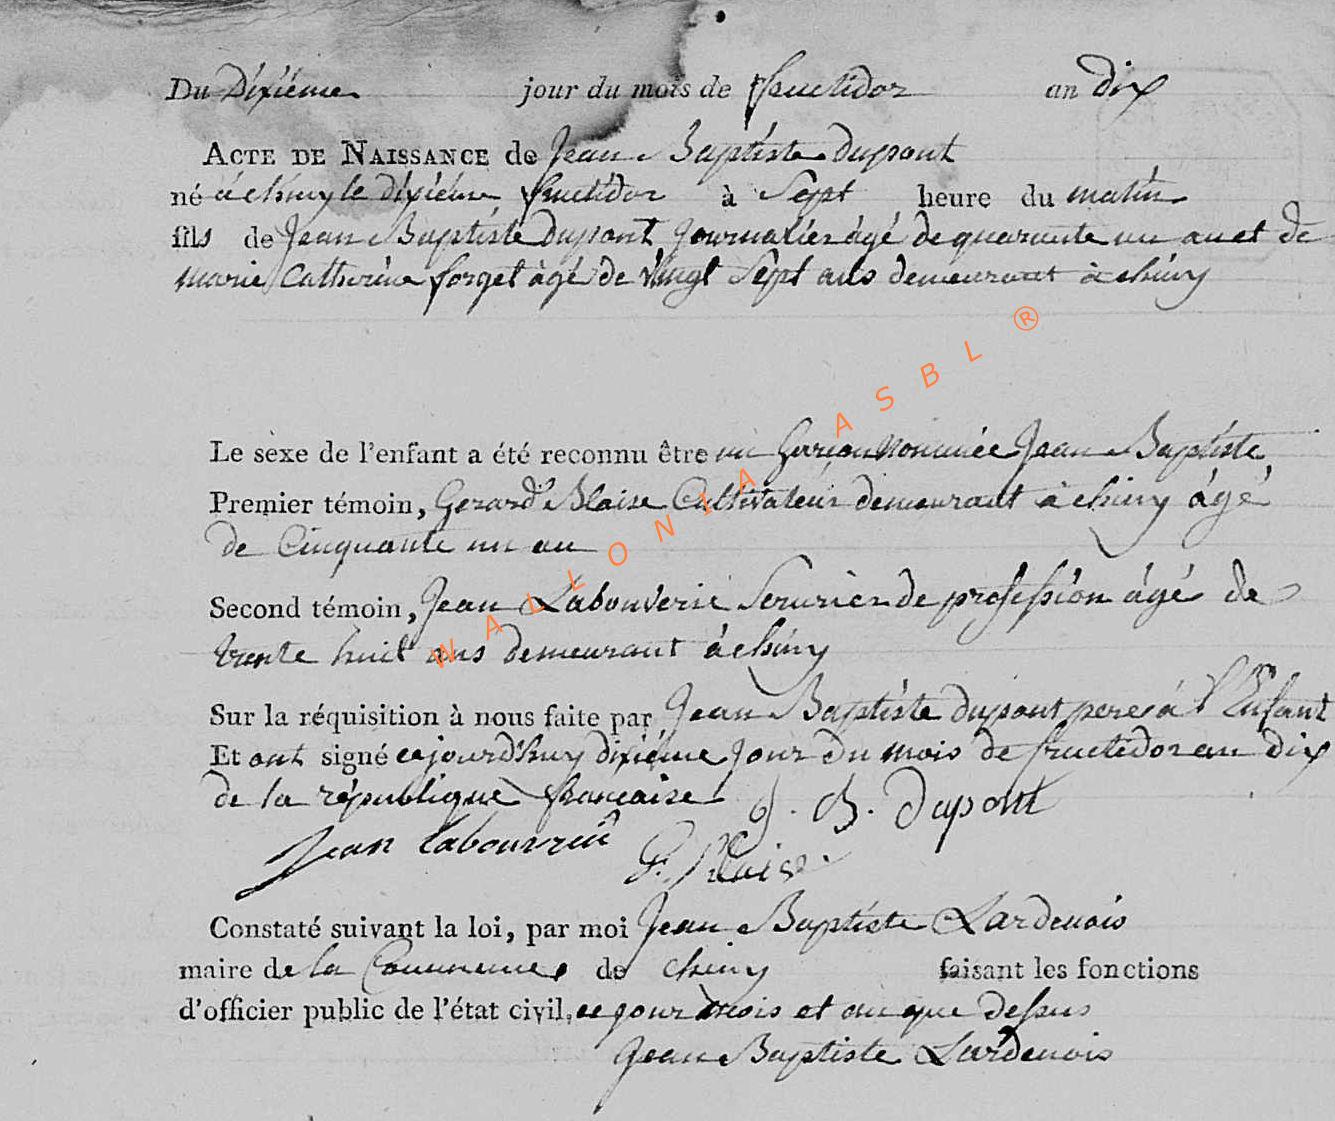 Du Dixiéme jour du mois de fructidor an dix
ACTE DE NAISSANCE de Jean Baptiste dupont
né à chiny le dixiéme fructidor à Sept heure du matin
fils de Jean Baptiste dupont journalier âgé de quarante un an et de
marie Catherine forget âgé de vingt Sept ans demeurant à chiny
Le sexe de l'enfant a été reconnu être un Garcon nommée Jean Baptiste
Premier témoin, Gerard Blaise Cultivateur demeurant à chiny âgé
de Cinquante un an
Second témoin, Jean Labouverie Serurier de profession âgé de
trente huit ans demeurant à chiny
Sur la réquisition à nous faite par Jean Baptiste dupont pere à l'Enfant
Et ont signé cejourd'huy dixiéme jour du mois de fructidor an dix
de la république francaise J. B. Dupont
Jean labouverie G. Blaise
Constaté suivant la loi, par moi Jean Baptiste Lardenois
maire de la Commune de chiny faisant les fonctions
d'officier public de l'état civil, ce jour mois et an que dessus
Jean Baptiste Lardenois
WALLONIA ASBL ®